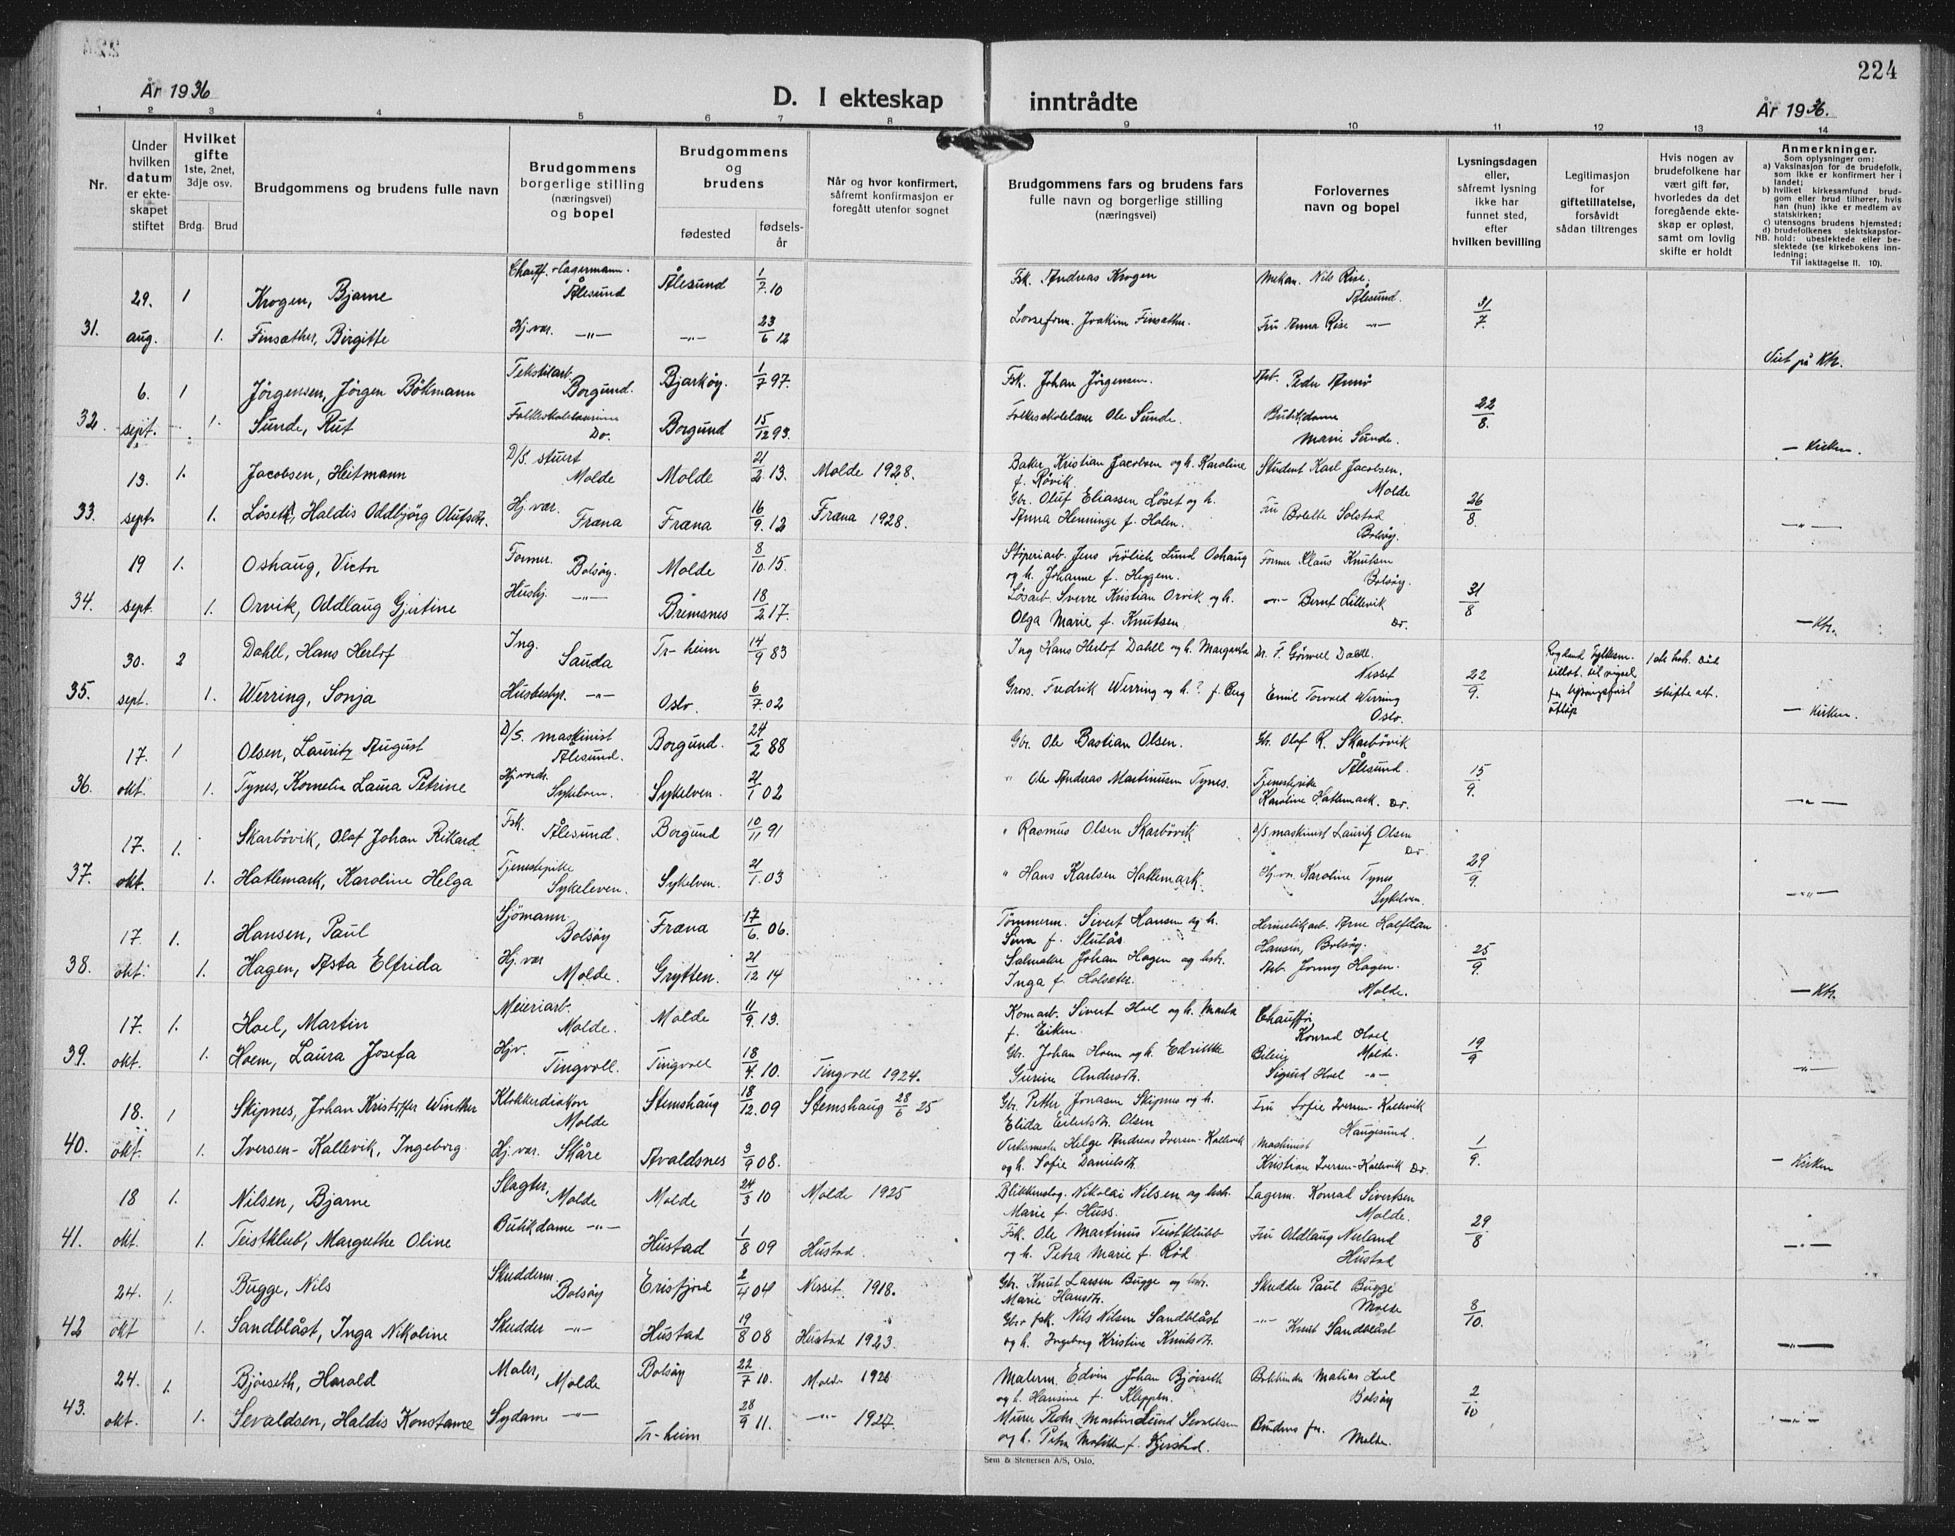 224
År 1936
D. I ekteskap inntrådte
År 1936.
1 2 3 4 5 6 7 8 9 10 11 12 13 14
Nr.
Under hvilken datum er ekteskapet stiftet
Hvilket gifte 1ste, 2net, 3dje osv.
Brdg. Brud
Brudgommens og brudens fulle navn
Brudgommens borgerlige stilling (næringsvei) og bopel
Brudgommens og brudens
fødested
fødselsår
Når og hvor konfirmert, såfremt konfirmasjon er foregått utenfor sognet
Brudgommens fars og brudens fars fulle navn og borgerlige stilling (næringsvei)
Forlovernes navn og bopel
Lysningsdagen eller, såfremt lysning ikke har funnet sted, efter hvilken bevilling
Legitimasjon for giftetillatelse, forsåvidt sådan tiltrenges
Hvis nogen av brudefolkene har vært gift før, hvorledes da det foregående ekteskap er opløst, samt om lovlig skifte er holdt
Anmerkninger.
Som oplysninger om:
a) Vaksinasjon for de brudefolk, som ikke er konfirmert her i landet;
b) hvilket kirkesamfund brudgom eller brud tilhører, hvis han (hun) ikke er medlem av statskirken;
c) utensogns brudens hjemsted;
d) brudefolkenes slektskapsforhold: ubeslektede eller beslektede (se kirkebokens innledning;
NB.
Til iakttagelse II. 10).
29. 1 Krogen, Bjarne Chauff. - lagermann. Ålesund Ålesund 1/7.10 Fsk. Andreas Krogen Mekan. Nils Rise, Ålesund.
31. aug. 1. Finsæther, Birgitte Hj.vær. -"- -"- 23/6 12 Joakim Finsæther. Fru Anna Rise -"- 31/7. Viet på Ktr.
6. 1 Jørgensen, Jørgen Böhmann Tekstilarb. Borgund. Bjarköy. 1/7 97. Fsk. Johan Jørgensen. Arb. Peder
32. sept. 1. Sunde, Rut Folkeskolelærerinne Do. Borgund 15/12 93. Folkeskolelærer Ole Sunde. Butikdame Marie Sunde. 22/8. - Kirken.
13. 1. Jacobsen, Heitmann D/S. stuert Molde Molde 21/2.13. Molde 1928. Baker Kristian Jacobsen og h. Karoline f. Røvik. Student Karl Jacobsen. Molde
33. sept. 1. Løseth, Haldis Oddbjørg Olufsdtr. Hj. vær. Fræna Fræna 16/9.12 Fræna 1928. Gbr. Oluf Eliassen Løset og h. Anna Henninge f. Holen. Fru Bolette Solstad Bolsøy. 26/8. -"-
19 1. Oshaug, Victor Former. Bolsøy. Molde 8/10.15. Støperiarb. Jens Frölich Lund Oshaug og h. Johanne f. Heggem. Former Klaus Knutsen Bolsøy.
34. sept. 1. Orvik, Oddlaug Gjertine Hushj. -"- Bremsnes 18/2.17. Løsarb. Sverre Kristian Orvik og h. Olga Marie f. Knutsen. -"- Bernt Lillevik Do. 31/8 - Ktr.
30. 2 Dahll, Hans Herlof Ing. Sauda Tr-heim 14/9 83 Ing Hans Herlof Dahll og h. Margareta Dr. F. Görvell Dahll. Nesset
35. sept. 1. Werring, Sonja Husbestyr. -"- Oslo. 6/7.02 Gros. Fredrik Werring og h. ? f. Berg Emil Torvald Werring Oslo. 22/9. Rogland Fylkesm. tillat. til vigsel før lysningsfrist utløp 1 ste hsk. Død skifte alt. - Kirken.
17. 1 Olsen, Lauritz August D/S. maskinist Ålesund. Borgund. 24/2 88 Gbr. Ole Bastian Olsen. Gbr. Olaf R. Skarbövik Ålesund.
36. okt. 1. Tynes, Kornelia Laura Petrine Sykelven. Sykelven. 21/1 02 " Ole Andreas Martinusen Tynes. Tjenestepike Karoline Hatlemark. Do. 15/9. -"-
17. 1. Skarbövik, Olaf Johan Rikard Fsk. Ålesund. Borgund 10/11 91 " Rasmus Olsen Skarbövik D/S maskinist Lauritz Olsen Do.
37. okt. 1. Hatlemark, Karoline Helga Tjenestepike Sykelven. Sykelven. 21/1.03 " Hans Karlsen Hatlemark. Hj. vær. Karoline Tynes Sykelven. 29/9. -"-
17. 1. Hansen, Paul Sjömann Bolsøy Fræna 17/6. 06. Tømmerm. Sivert Hansen og h. f. Hermetikarb. Arne Halfdan Hansen, Bolsøy.
38. okt. 1. Hagen, Asta Elfrida Hj. vær Molde. Grytten. 21/12 14 Salmaker Johan Hagen og hsk. Inga f. Holsæter. Arb. Jonny Hagen. Molde. 25/9. - Ktr.
17. 1. Hoel, Martin Meieriarb. Molde. Molde 11/9.13. Komarb. Sivert Hoel og h. Marta f. Eiken. Chauffør Konrad Hoel Molde.
39. okt. 1. Hoem, Laura Josefa Hjv. Tingvoll. Tingvoll 18/4.10. Tingvoll 1924. Gbr. Johan Hoem og h. Edrikke Gurine Andersdtr. Bileier Sigurd Hoel -"- 19/9 -"-
18. 1 Skipnes, Johan Kristoffer Winther Klokkerdiakon Molde Stemshaug 18/12.09 Stemshaug 28/6 25 Gbr. Petter Jonasen Skipnes og h. Elida Eilertsdtr. Olsen Fru Sofie Iversen-Kallevik Haugesund.
40. okt. 1. Iversen-Kallevik, Ingeborg. Hj. vær. Skåre Avaldsnes 3/9 08. Verksmester Helge Andreas Iversen-Kallevik og h. Sofie Danielsdtr. Maskinist Kristian Iversen-Kallevik Do. 1/9. - Kirken
18 1. Nilsen, Bjarne Slagter, Molde Molde 24/3 10 Molde 1925 Blikkenslag. Nikolai Nilsen og hsk. Marie f. Huss. Lagerm. Konrad Sivertsen Molde.
41. okt. 1. Teistklub, Margrethe Oline Butikdame -"- Hustad 1/8 09 Hustad. Fsk. Ole Martinus Teistklubb og h. Petra Marie f. Rød Fru Oddlaug Nerland Hustad 29/8 -"-
24. 1. Bugge, Nils Skredderm. Bolsøy Erisfjord 2/4 04 Nesset 1918. Gbr. Knut Larsen Bugge og hsk. Marie Hansdtr. Skredder Paul Bugge Molde
42 okt 1. Sandblåst, Inga Nikoline Skredder -"- Hustad 19/8 08 Hustad 1923. Gbr. fsk. Nils Nilsen Sandblåst og h. Ingeborg Kristine Knutsdtr. -"- Knut Sandblåst 8/10. -"-
24. 1. Bjørseth, Harald Maler, Molde Bolsøy 22/7 10. Molde Malerm. Edvin Johan Bjørseth og h. Hansine f. Kleppen. Matias Hoel Bolsøy
43. okt. 1. Sevaldsen, Haldis Konstanse Sydame -"- Tr-heim 28/9 11. -"- 1927. Murer Peder Martin Lund Sevaldsen og h. Petra f. Gjerstad. Brudens far. Molde. 2/10 -"-
Sem & Stenersen A/S, Oslo.